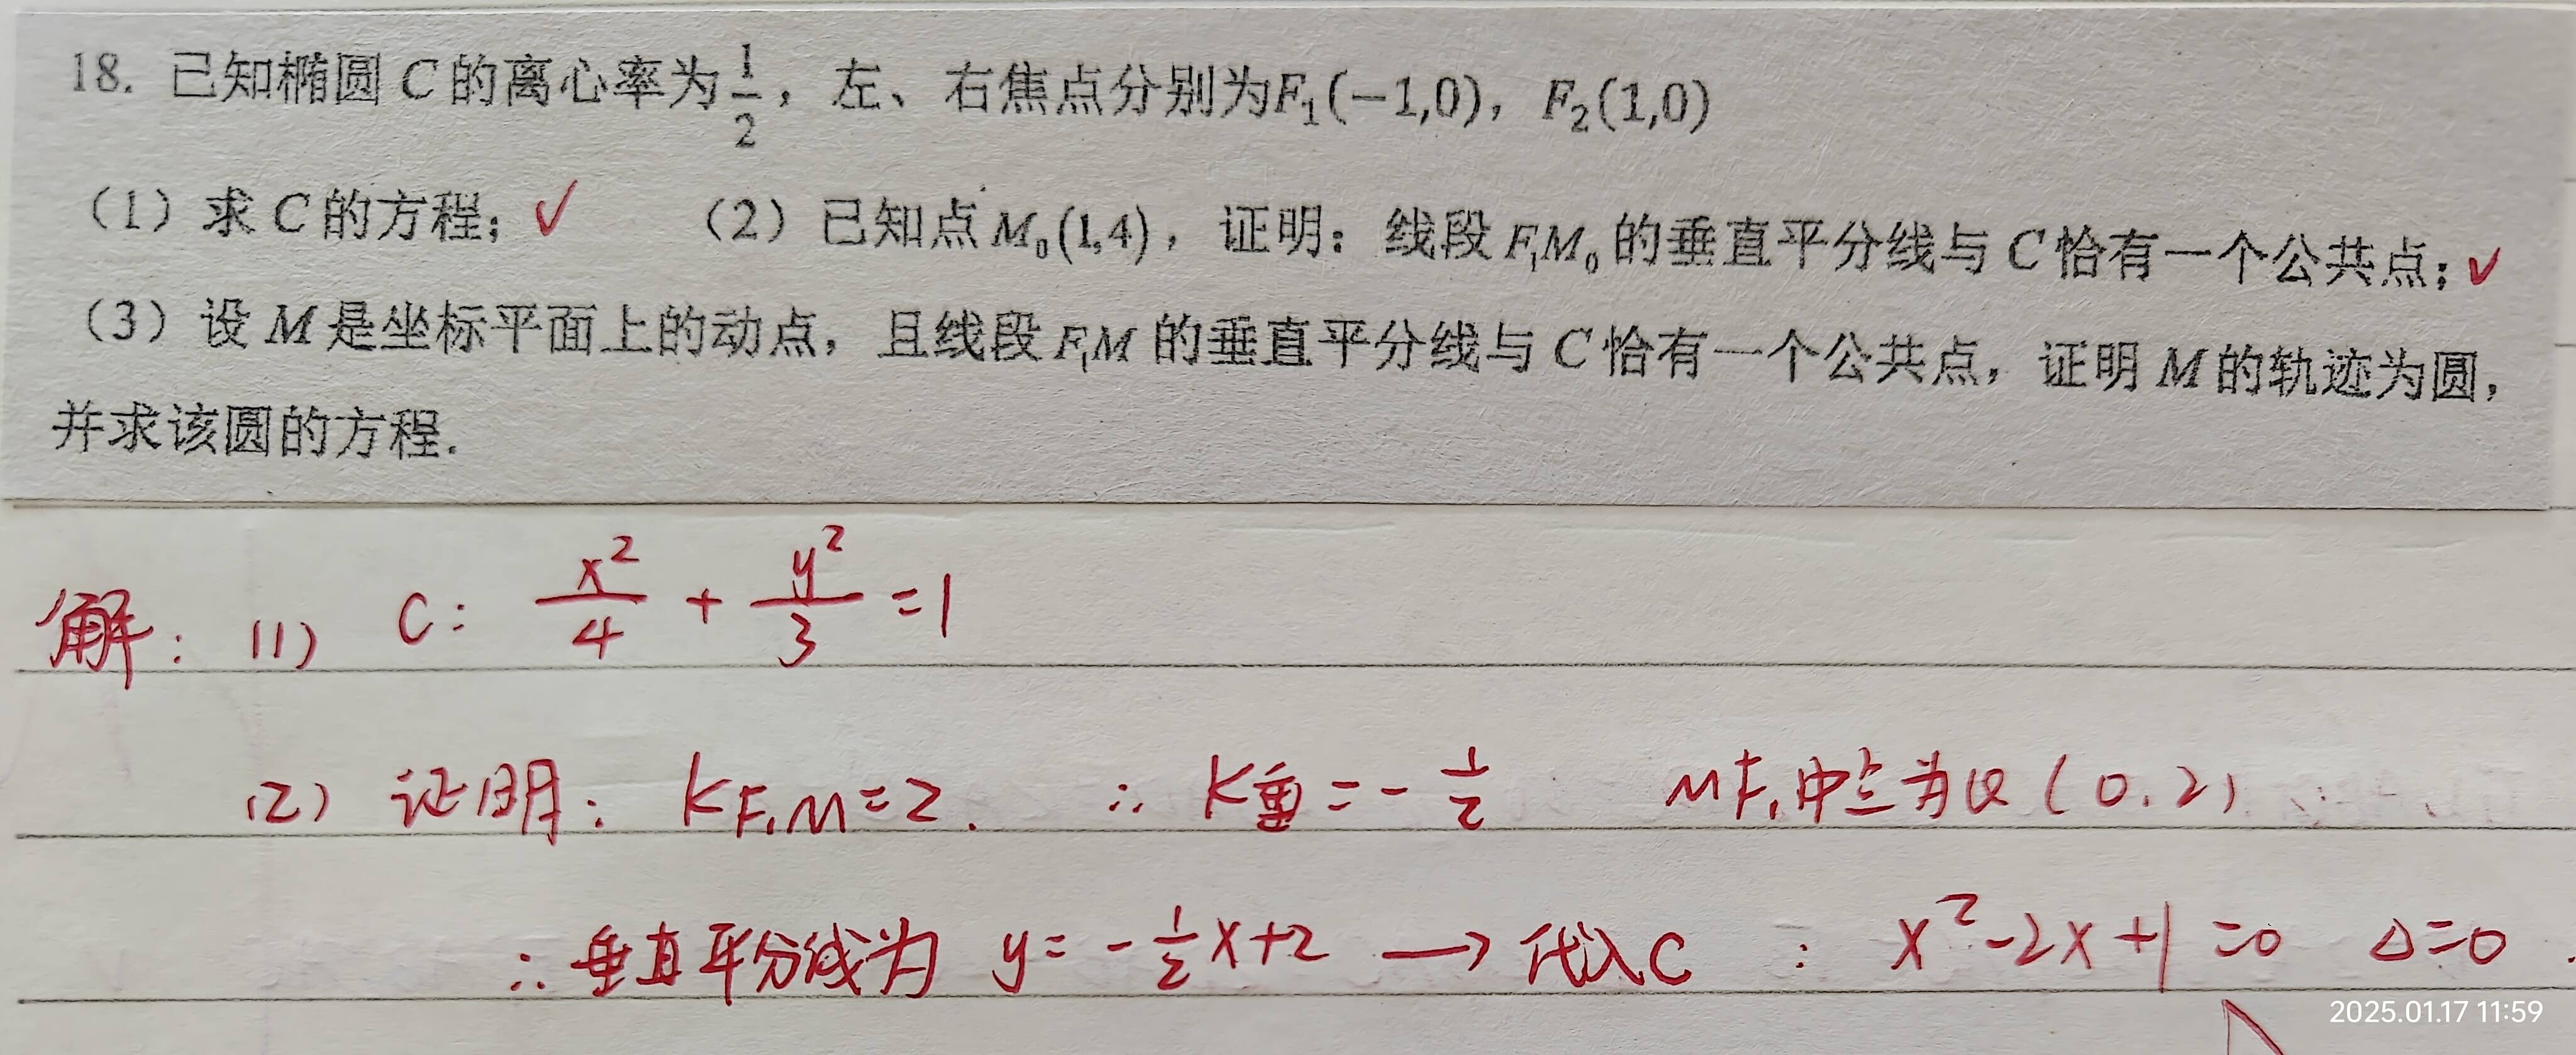 18. 已知椭圆 C 的离心率为 1/2，左、右焦点分别为F₁(−1,0)，F₂(1,0)
（1）求 C 的方程；✓ （2）已知点 M₀(1,4)，证明：线段 F₁M₀ 的垂直平分线与 C 恰有一个公共点；✓
（3）设 M 是坐标平面上的动点，且线段 F₁M 的垂直平分线与 C 恰有一个公共点，证明 M 的轨迹为圆，
并求该圆的方程.
解：(1) C: x²/4 + y²/3 = 1
(2) 证明：K_F₁M=2. ∴ K垂=-1/2 MF₁中点为Q(0,2)
∴垂直平分线为 y=-1/2x+2 → 代入C : x²-2x+1=0 Δ=0.
2025.01.17 11:59